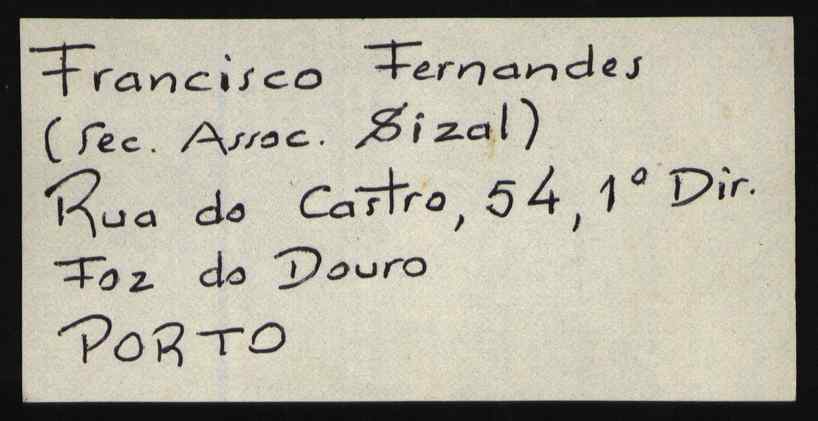 Francisco Fernandes
(Sec. Assoc. Sizal)
Rua do Castro, 54, 1º Dir.
Foz do Douro
PORTO